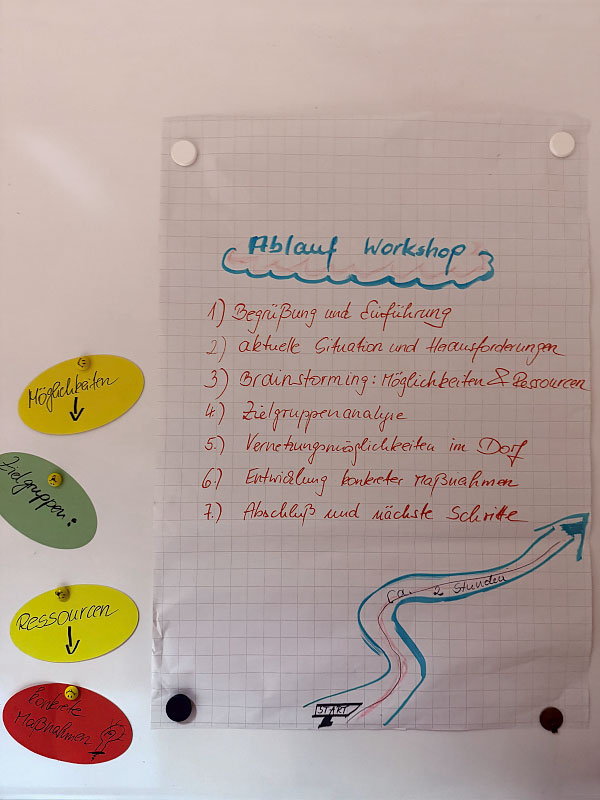 Ablauf Workshop
1) Begrüßung und Einführung
2) aktuelle Situation und Herausforderungen
3) Brainstorming: Möglichkeiten & Ressourcen
4) Zielgruppenanalyse
5.) Vernetzungsmöglichkeiten im Dorf
6.) Entwicklung konkreter Maßnahmen
7.) Abschluß und nächste Schritte
ca. 2 Stunden
START
Möglichkeiten
Zielgruppen:
Ressourcen
konkrete
Maßnahmen